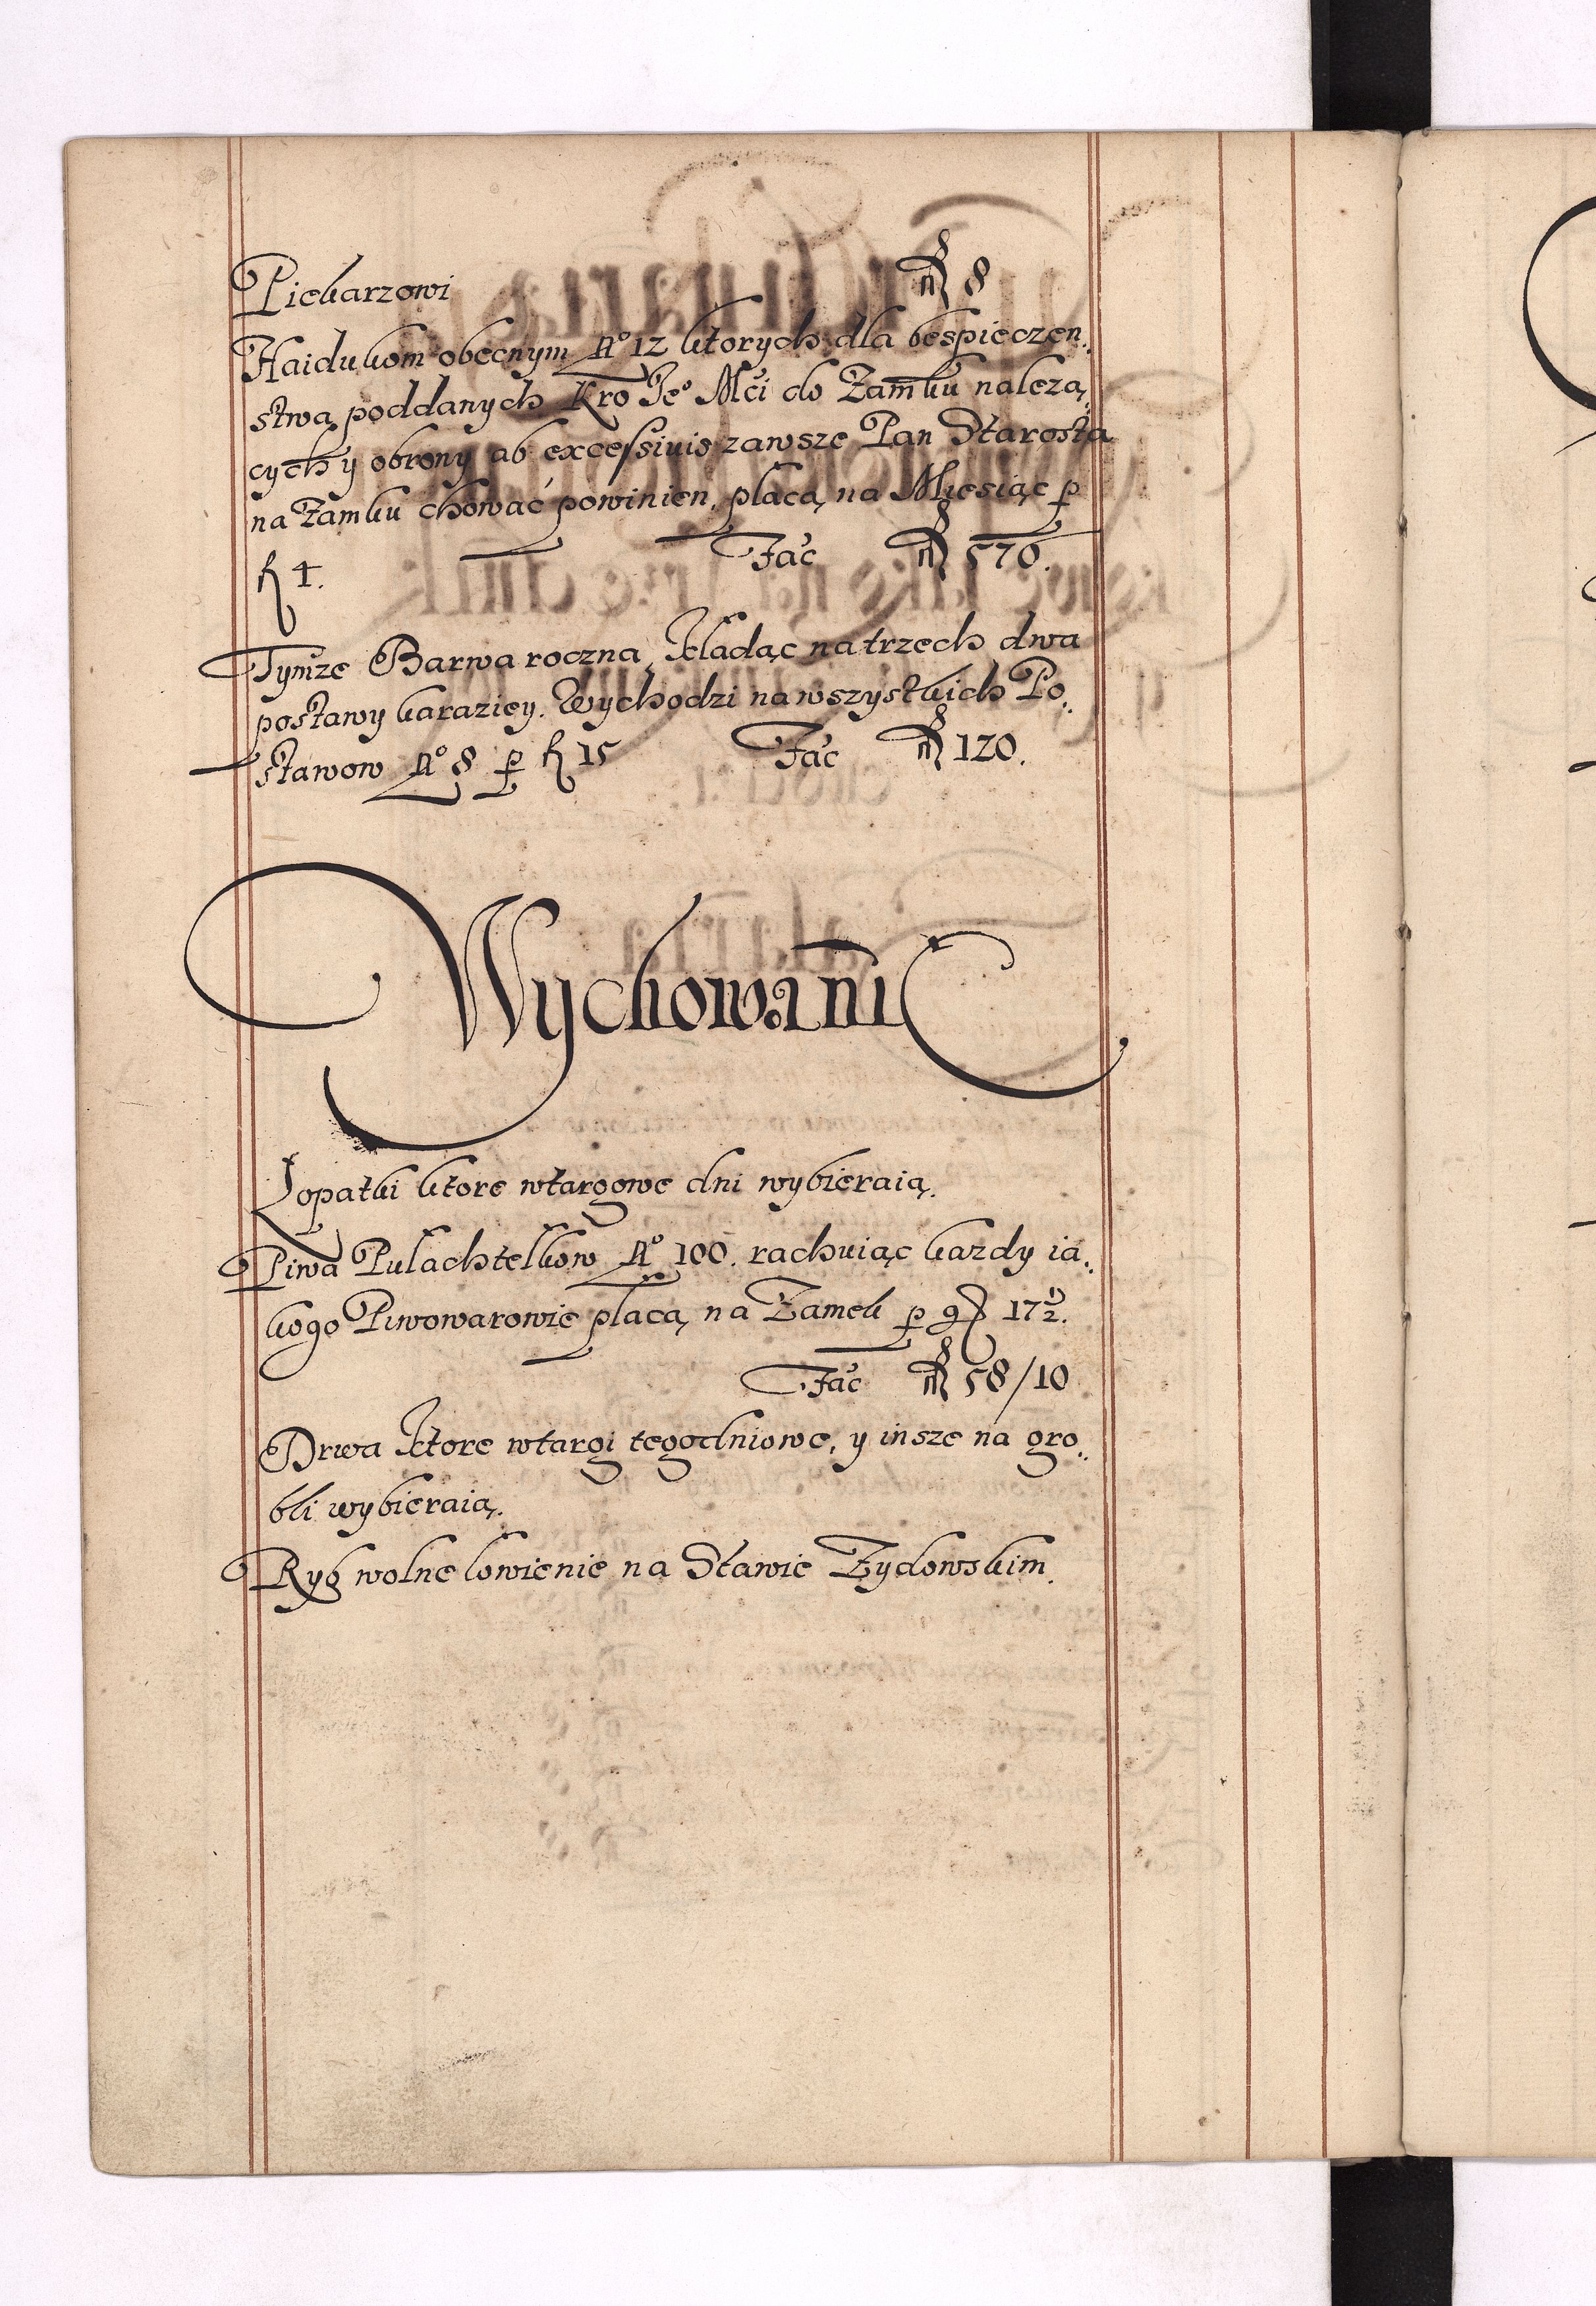 Piekarzowi fl 8
Haidukom obecnym No 12 ktorych dla bespieczen:
stwa poddanych Kro Jeo Mci do Zamku należą:
cych y obrony ab excessiuis zawsze Pan Starosta
na Zamku chować powinien, płacą na Miesiąc p
fl 4. Fac fl 570.
Tymze Barwa roczna, kładąc na trzech dwa
postawy karaziey. Wychodzi na wszystkich Po:
stawow No 8 p fl 15 Fac fl 120.
Wychowanie
Łopatki ktore w targowe dni wybieraią.
Piwa Pułachtelkow No 100. rachuiąc kazdy ia:
kogo Piwowarowie płacą na Zamek p gr 17 1/2.
Fac fl 58/10
Drwa ktore w targi tegodniowe, y insze na gro:
bli wybieraią.
Ryb wolne łowienie na Stawie Zydowskim.